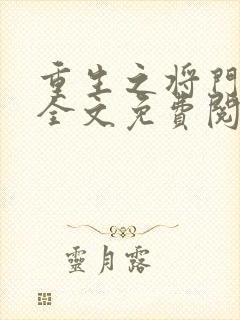 重生之将門
全文免費閱
靈月露